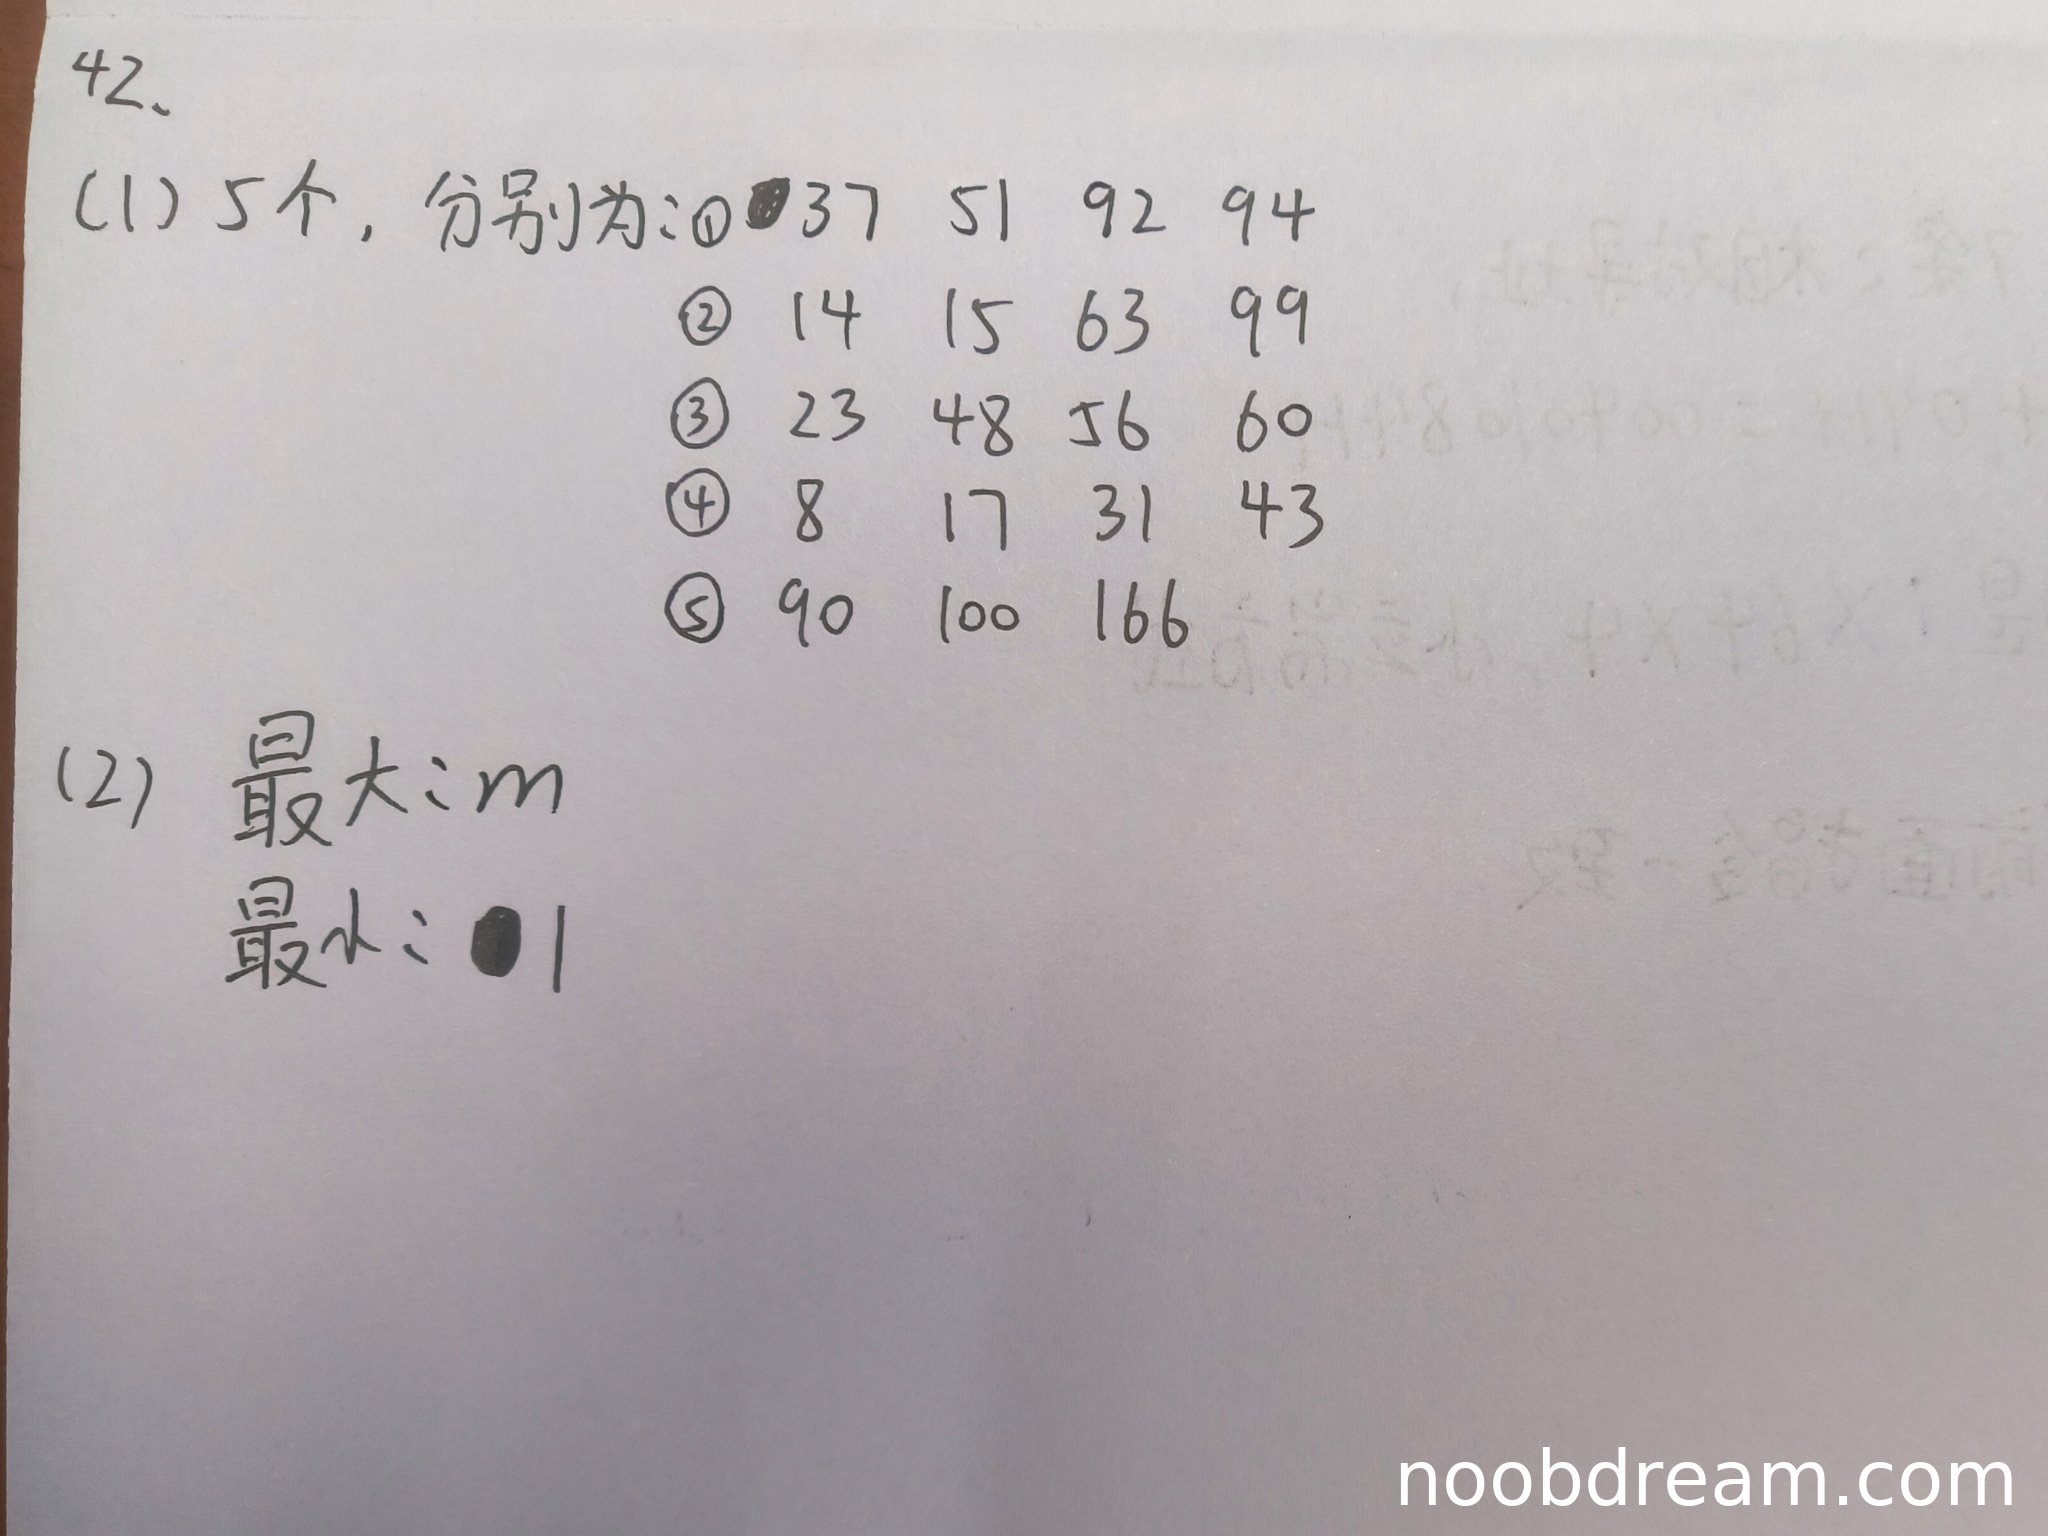 42、
(1) 5个, 分别为: ① 37 51 92 94
② 14 15 63 99
③ 23 48 56 60
④ 8 17 31 43
⑤ 90 100 166
(2) 最大: m
最小: 1
noobdream.com